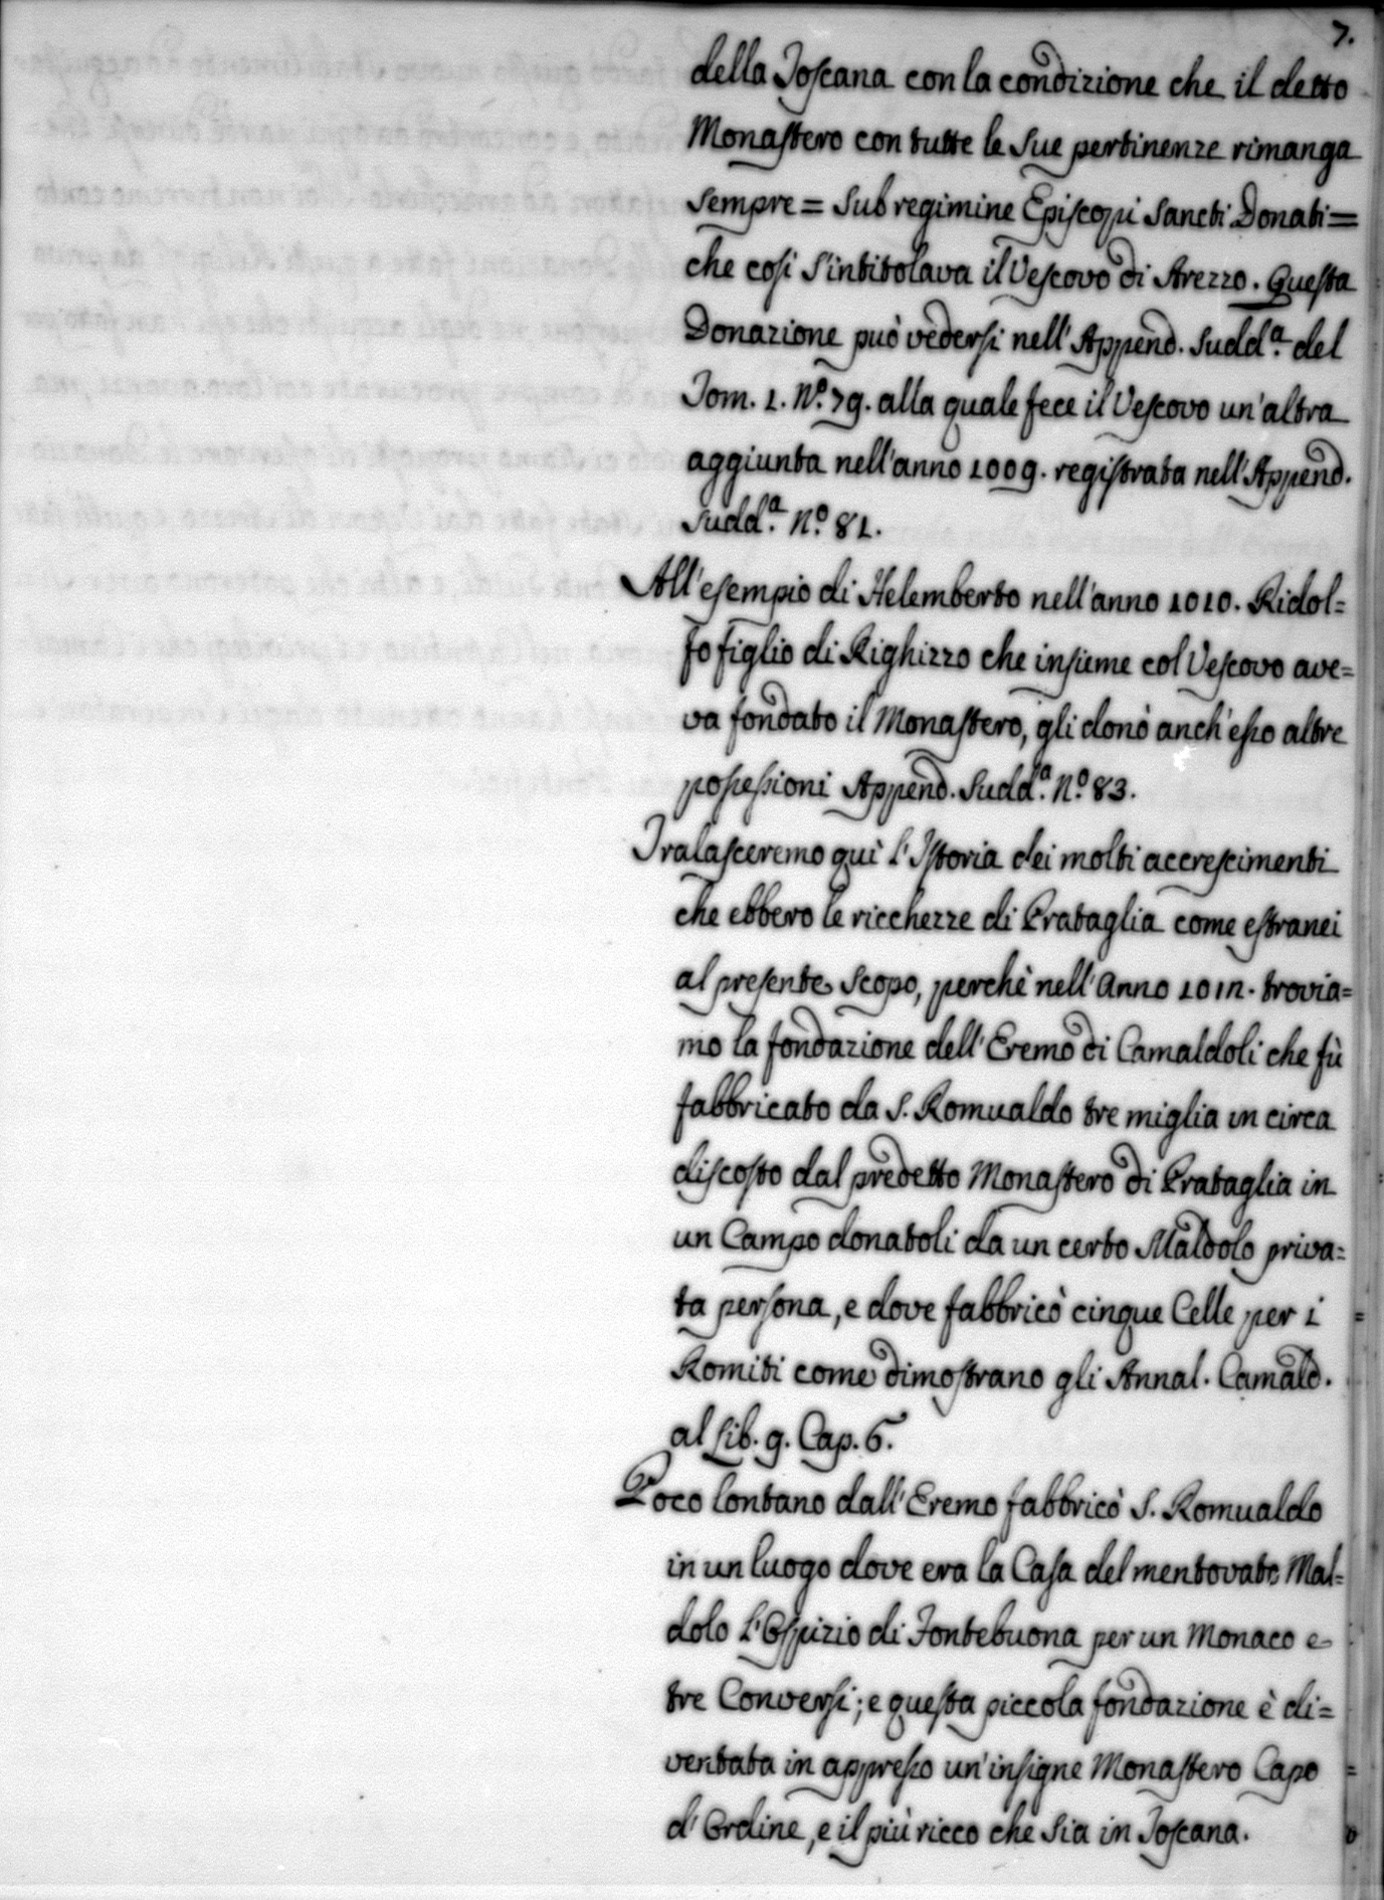 7.
della Toscana con la condizione che il detto
Monastero con tutte le Sue pertinenze rimanga
sempre = Sub regimine Episcopi Sancti Donati =
che così S'intitolava il Vescovo di Arezzo. Questa
Donazione può vedersi nell'Append. Sudd.ª del
Tom. 1. N.º 79. alla quale fece il Vescovo un'altra
aggiunta nell'anno 1009. registrata nell'Append.
Sudd.ª N.º 81.
All'esempio di Helemberto nell'anno 1010. Ridol=
fo figlio di Righizzo che insieme col Vescovo ave=
va fondato il Monastero, gli donò anch'esso altre
possessioni Append. Sudd.ª N.º 83.
Tralasceremo quì l'Istoria dei molti accrescimenti
che ebbero le ricchezze di Prataglia come estranei
al presente Scopo, perchè nell'Anno trovia=
mo la fondazione dell'Eremo di Camaldoli che fù
fabbricato da S. Romualdo tre miglia in circa
discosto dal predetto Monastero di Prataglia in
un Campo donatoli da un certo Maldolo priva=
ta persona, e dove fabbricò cinque Celle per i
Romiti come dimostrano gli Annal. Camald.
al Lib. 9. Cap. 6.
Poco lontano dall'Eremo fabbricò S. Romualdo
in un luogo dove era la Casa del mentovato Mal=
dolo l'Ospizio di Fontebuona per un Monaco e
tre Conversi; e questa piccola fondazione è di=
ventata in appresso un'insigne Monastero Capo
d'Ordine, e il più ricco che Sia in Toscana.